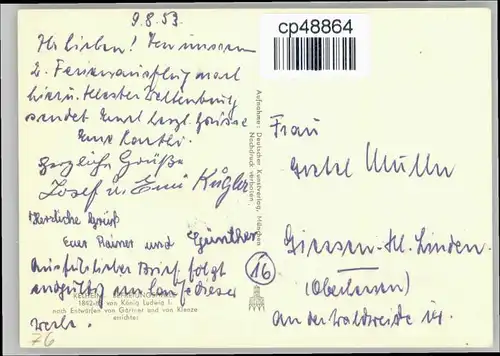 9.8.53
cp48864
Ihr Lieben! Von unserem
2. Ferienausflug nach
hier u. Kloster Weltenburg
sendet Euch herzl. Grüsse
Eure
Herzliche Grüße
Josef u. Emi Kugler
Herzliche Grüße
Euer Rainer und Günther
Ausführlicher Brief folgt
endgültig im Laufe dieser
Woche.
KELHEIM, BEFREIUNGSHALLE
von König Ludwig I.
nach Entwürfen von Gärtner und von Klenze
errichtet
76
Aufnahme: Deutscher Kunstverlag, München
Nachdruck verboten.
Frau
Müller
Giessen-Kl. Linden
16
(Oberhessen)
An der Waldweide 14.